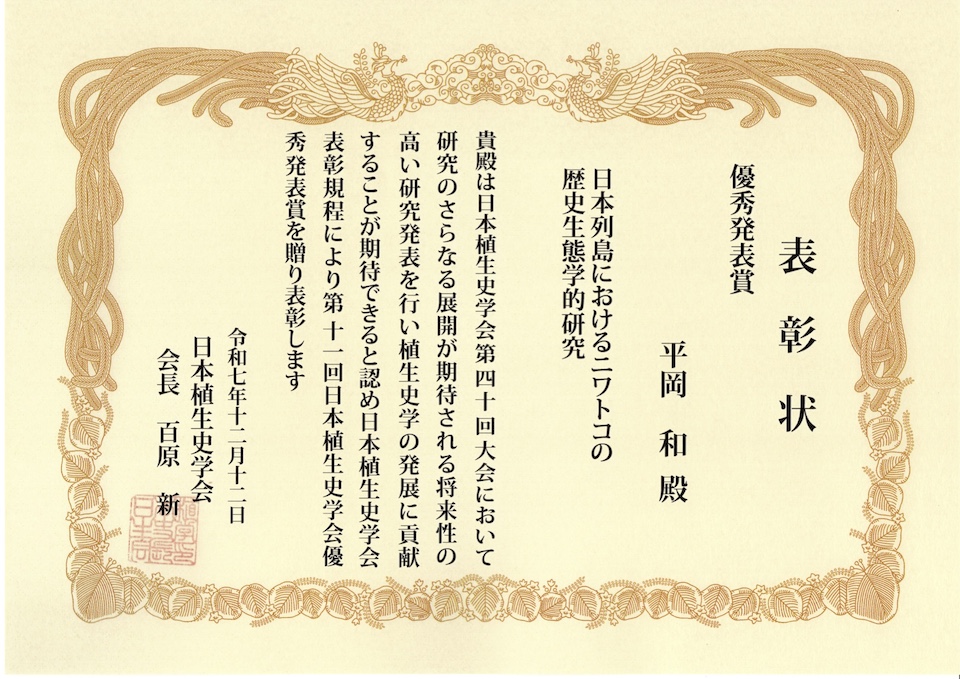 表彰状
優秀発表賞
平岡 和 殿
日本列島におけるニワトコの
歴史生態学的研究
貴殿は日本植生史学会第四十回大会において
研究のさらなる展開が期待される将来性の
高い研究発表を行い植生史学の発展に貢献
することが期待できると認め日本植生史学会
表彰規程により第十一回日本植生史学会優
秀発表賞を贈り表彰します
令和七年十二月十二日
日本植生史学会
会長 百原 新